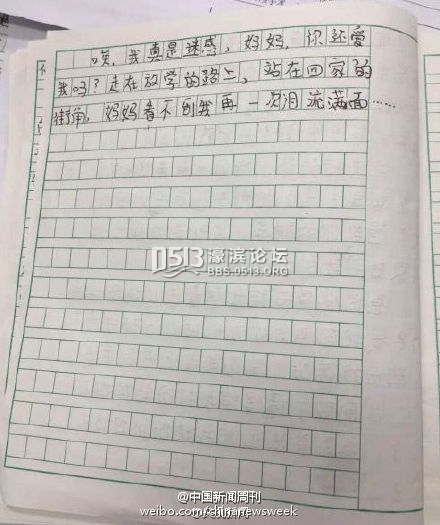 唉，我真是迷惑，妈妈，你还爱
我吗？走在放学的路上，站在回家的
街角，妈妈看不到我再一次泪流满面……
0513濠滨论坛
BBS.0513.ORG
@中国新闻周刊
weibo.com/chinanewsweek